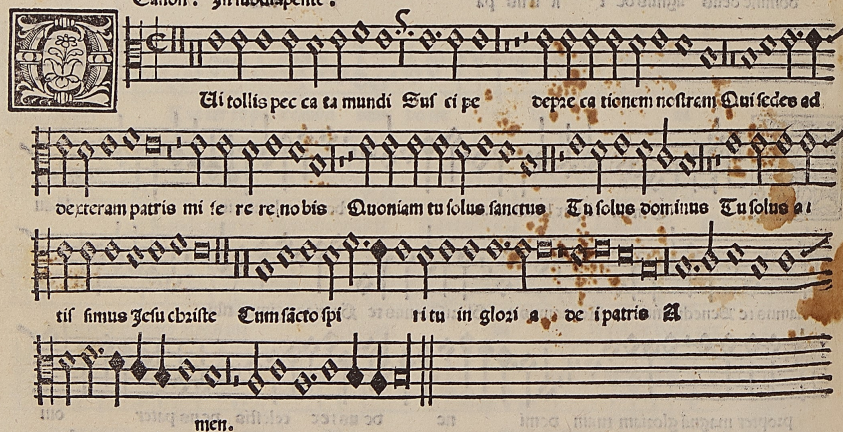 Canon. In subdiapente.
QUi tollis pec ca ta mundi Sus ci pe depre ca tionem nostram Qui sedes ad
dexteram patris mi se re re nobis Quoniam tu solus sanctus Tu solus dominus Tu solus al
tis simus Jesu christe Cum sãcto spi ri tu in glori a de i patris A
men.